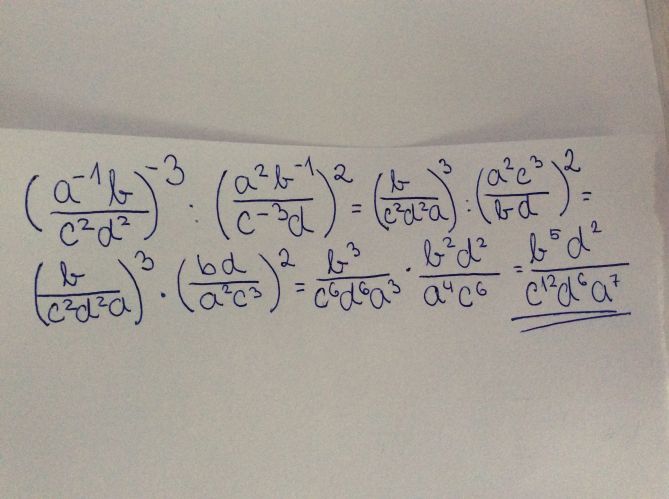 (a⁻¹b/c²d²)⁻³ : (a²b⁻¹/c⁻³d)² = (b/c²d²a)³ : (a²c³/bd)² =
(b/c²d²a)³ · (bd/a²c³)² = b³/c⁶d⁶a³ · b²d²/a⁴c⁶ = b⁵d²/c¹²d⁶a⁷